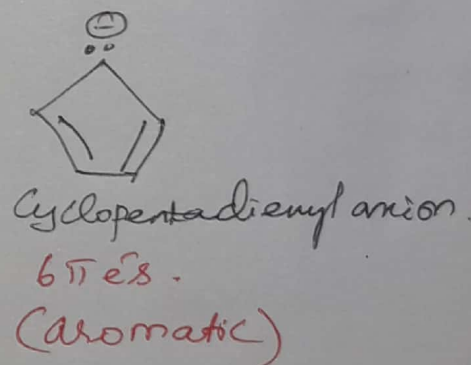 ⊖
Cyclopentadienyl anion.
6π e⁻s.
(aromatic)